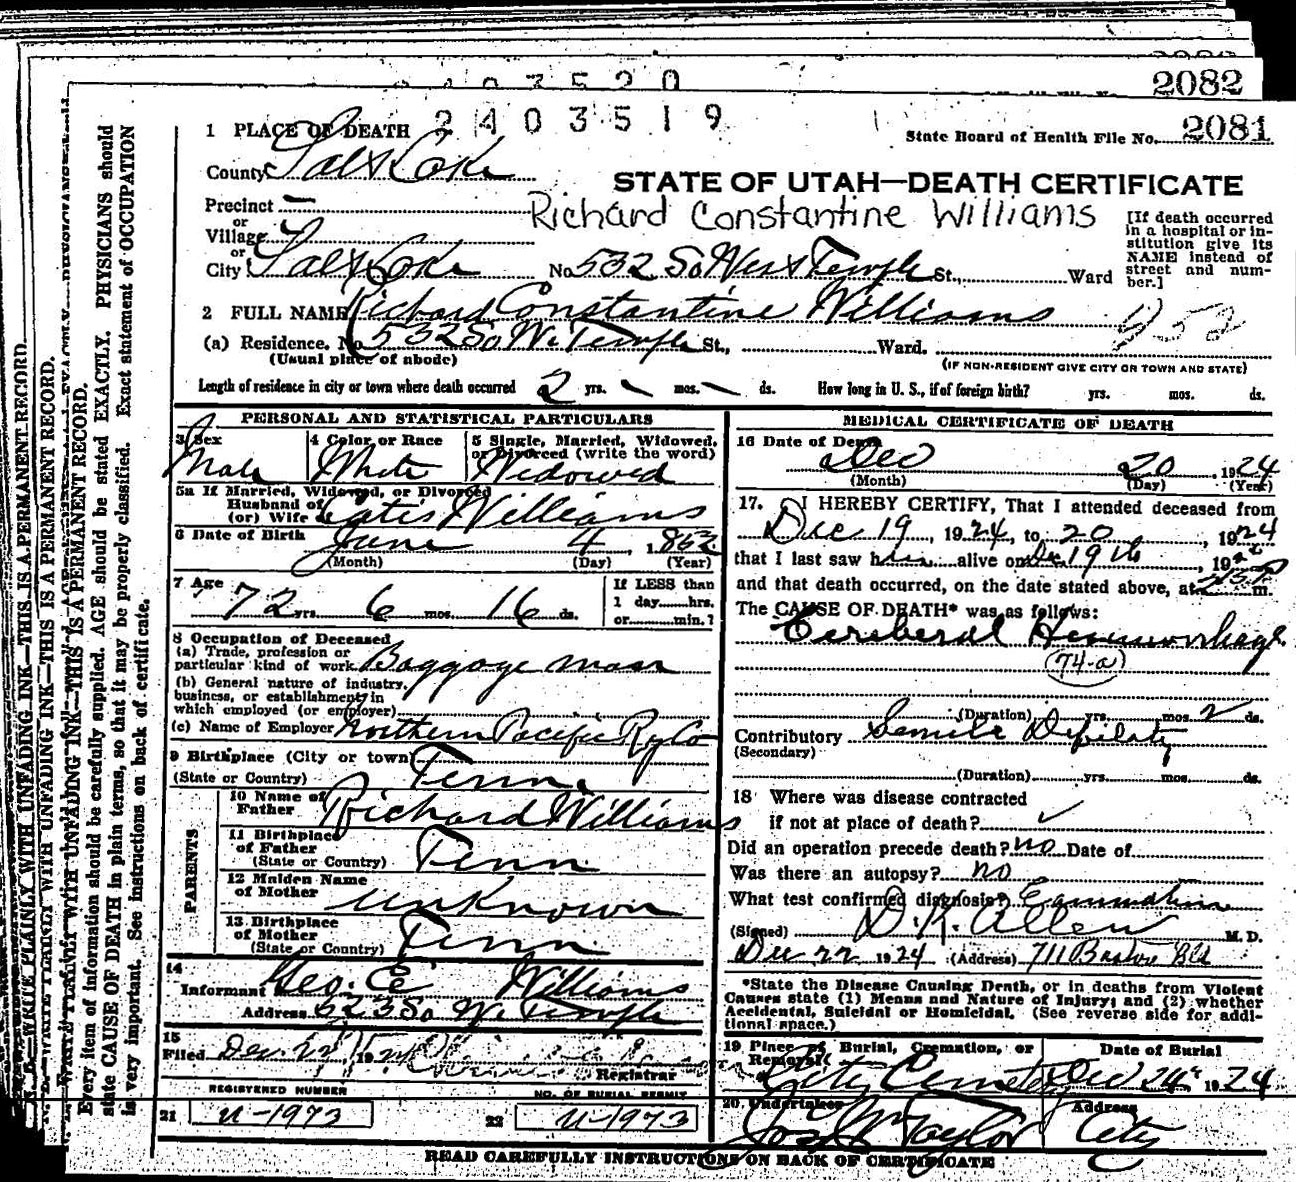 2082
2403520
2403519
State Board of Health File No. 2081
1 PLACE OF DEATH
County Salt Lake
STATE OF UTAH—DEATH CERTIFICATE
Precinct
or
Village
or
City Salt Lake No. 532 So West Temple St., Ward
Richard Constantine Williams
[If death occurred in a hospital or institution give its NAME instead of street and number.]
2 FULL NAME Richard Constantine Williams
(a) Residence. No. 532 So W. Temple St., Ward.
(Usual place of abode) (IF NON-RESIDENT GIVE CITY OR TOWN AND STATE)
Length of residence in city or town where death occurred 2 yrs. — mos. — ds. How long in U. S., if of foreign birth? yrs. mos. ds.
PERSONAL AND STATISTICAL PARTICULARS
3 Sex Male
4 Color or Race White
5 Single, Married, Widowed, or Divorced (write the word) Widowed
5a If Married, Widowed, or Divorced
Husband of
(or) Wife of Williams
6 Date of Birth June 4, 1852
(Month) (Day) (Year)
7 Age 72 yrs. 6 mos. 16 ds.
If LESS than 1 day......hrs. or......min.?
8 Occupation of Deceased
(a) Trade, profession or particular kind of work Baggage man
(b) General nature of industry, business, or establishment in which employed (or employer)
(c) Name of Employer Northern Pacific Ry Co
9 Birthplace (City or town)
(State or Country) Tenn.
PARENTS
10 Name of Father Richard Williams
11 Birthplace of Father (State or Country) Tenn
12 Maiden Name of Mother unknown
13 Birthplace of Mother (State or Country) Tenn
14
Informant Geo. E. Williams
Address 523 So W. Temple
15
Filed Dec 22 1924
Registrar
REGISTERED NUMBER
21 U-1973
NO. OF BURIAL PERMIT
22 U-1973
MEDICAL CERTIFICATE OF DEATH
16 Date of Death
Dec 20, 1924
(Month) (Day) (Year)
17. I HEREBY CERTIFY, That I attended deceased from
Dec 19, 1924, to 20, 1924
that I last saw him alive on Dec 19th, 19
and that death occurred, on the date stated above, at m.
The CAUSE OF DEATH* was as follows:
Cereberal Hemmorrhage
74-a
(Duration) yrs. mos. 2 ds.
Contributory Senile Depilaty
(Secondary)
(Duration) yrs. mos. ds.
18 Where was disease contracted
if not at place of death? ✓
Did an operation precede death? no Date of
Was there an autopsy? no
What test confirmed diagnosis? Examination
(Signed) D. K. Allen M. D.
Dec 22 1924 (Address) 711 Boston Bld
*State the Disease Causing Death, or in deaths from Violent
Causes state (1) Means and Nature of Injury; and (2) whether
Accidental, Suicidal or Homicidal. (See reverse side for additional space.)
19 Place of Burial, Cremation, or Removal City Cemetery
Date of Burial Dec 24, 1924
20. Undertaker Jos. Wm Taylor
Address City
READ CAREFULLY INSTRUCTIONS ON BACK OF CERTIFICATE
N. B.—WRITE PLAINLY WITH UNFADING INK—THIS IS A PERMANENT RECORD.
Every item of information should be carefully supplied. AGE should be stated EXACTLY. PHYSICIANS should
state CAUSE OF DEATH in plain terms, so that it may be properly classified. Exact statement of OCCUPATION
is very important. See instructions on back of certificate.